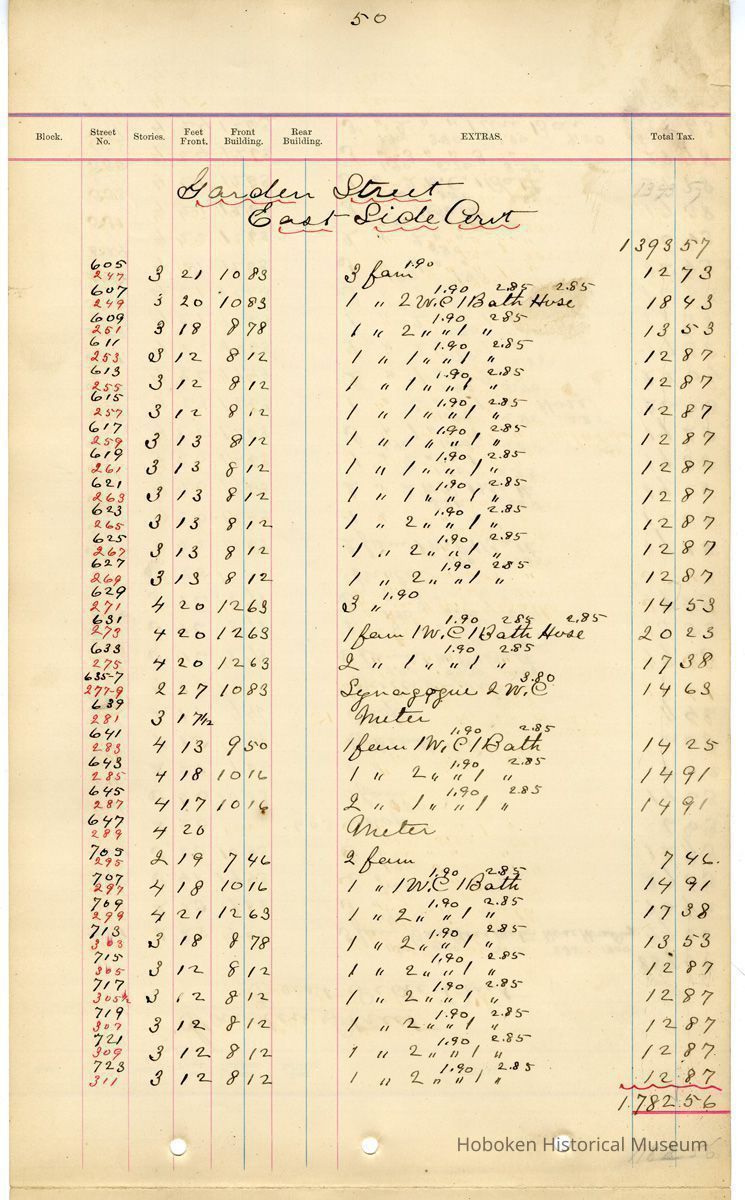 50
Block. Street No. Stories. Feet Front. Front Building. Rear Building. EXTRAS. Total Tax.
Garden Street
East Side Cont
1393 57
605 247 3 21 10 83 3 fam 1.90 12 73
607 249 3 20 10 83 1 " 2 W.C 1.90 1 Bath 2.85 Hose 2.85 18 43
609 251 3 18 8 78 1 " 2 " " 1.90 1 " 2.85 13 53
611 253 3 12 8 12 1 " 1 " " 1.90 1 " 2.85 12 87
613 255 3 12 8 12 1 " 1 " " 1.90 1 " 2.85 12 87
615 257 3 12 8 12 1 " 1 " " 1.90 1 " 2.85 12 87
617 259 3 13 8 12 1 " 1 " " 1.90 1 " 2.85 12 87
619 261 3 13 8 12 1 " 1 " " 1.90 1 " 2.85 12 87
621 263 3 13 8 12 1 " 1 " " 1.90 1 " 2.85 12 87
623 265 3 13 8 12 1 " 2 " " 1.90 1 " 2.85 12 87
625 267 3 13 8 12 1 " 2 " " 1.90 1 " 2.85 12 87
627 269 3 13 8 12 1 " 2 " " 1.90 1 " 2.85 12 87
629 271 4 20 12 63 3 " 1.90 14 53
631 273 4 20 12 63 1 fam 1 W.C 1.90 1 Bath 2.85 Hose 2.85 20 23
633 275 4 20 12 63 2 " 1 " " 1.90 1 " 2.85 17 38
635-7 277-9 2 27 10 83 Synagogue 2 W.C 3.80 14 63
639 281 3 17 1/12 Meter
641 283 4 13 9 50 1 fam 1 W.C 1.90 1 Bath 2.85 14 25
643 285 4 18 10 16 1 " 2 " " 1.90 1 " 2.85 14 91
645 287 4 17 10 16 2 " 1 " " 1.90 1 " 2.85 14 91
647 289 4 20 Meter
705 295 2 19 7 46 2 fam 7 46
707 297 4 18 10 16 1 " 1 W.C 1.90 1 Bath 2.85 14 91
709 299 4 21 12 63 1 " 2 " " 1.90 1 " 2.85 17 38
713 303 3 18 8 78 1 " 2 " " 1.90 1 " 2.85 13 53
715 305 3 12 8 12 1 " 2 " " 1.90 1 " 2.85 12 87
717 305½ 3 12 8 12 1 " 2 " " 1.90 1 " 2.85 12 87
719 307 3 12 8 12 1 " 2 " " 1.90 1 " 2.85 12 87
721 309 3 12 8 12 1 " 2 " " 1.90 1 " 2.85 12 87
723 311 3 12 8 12 1 " 2 " " 1.90 1 " 2.85 12 87
1782 56
Hoboken Historical Museum